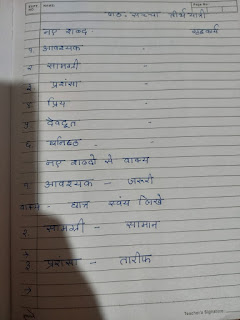 पाठ- सच्चा तीर्थ यात्री
नए शब्द
१ आवश्यक -
२ सामग्री -
३ प्रशंसा -
४ प्रिय -
५ देवदूत -
६ घनिष्ठ -
नए शब्दो से वाक्य
१ आवश्यक - जरुरी
वाक्य - छात्र स्वंय लिखे
२ सामग्री - सामान
३ प्रशंसा - तारीफ
Teacher's Signature